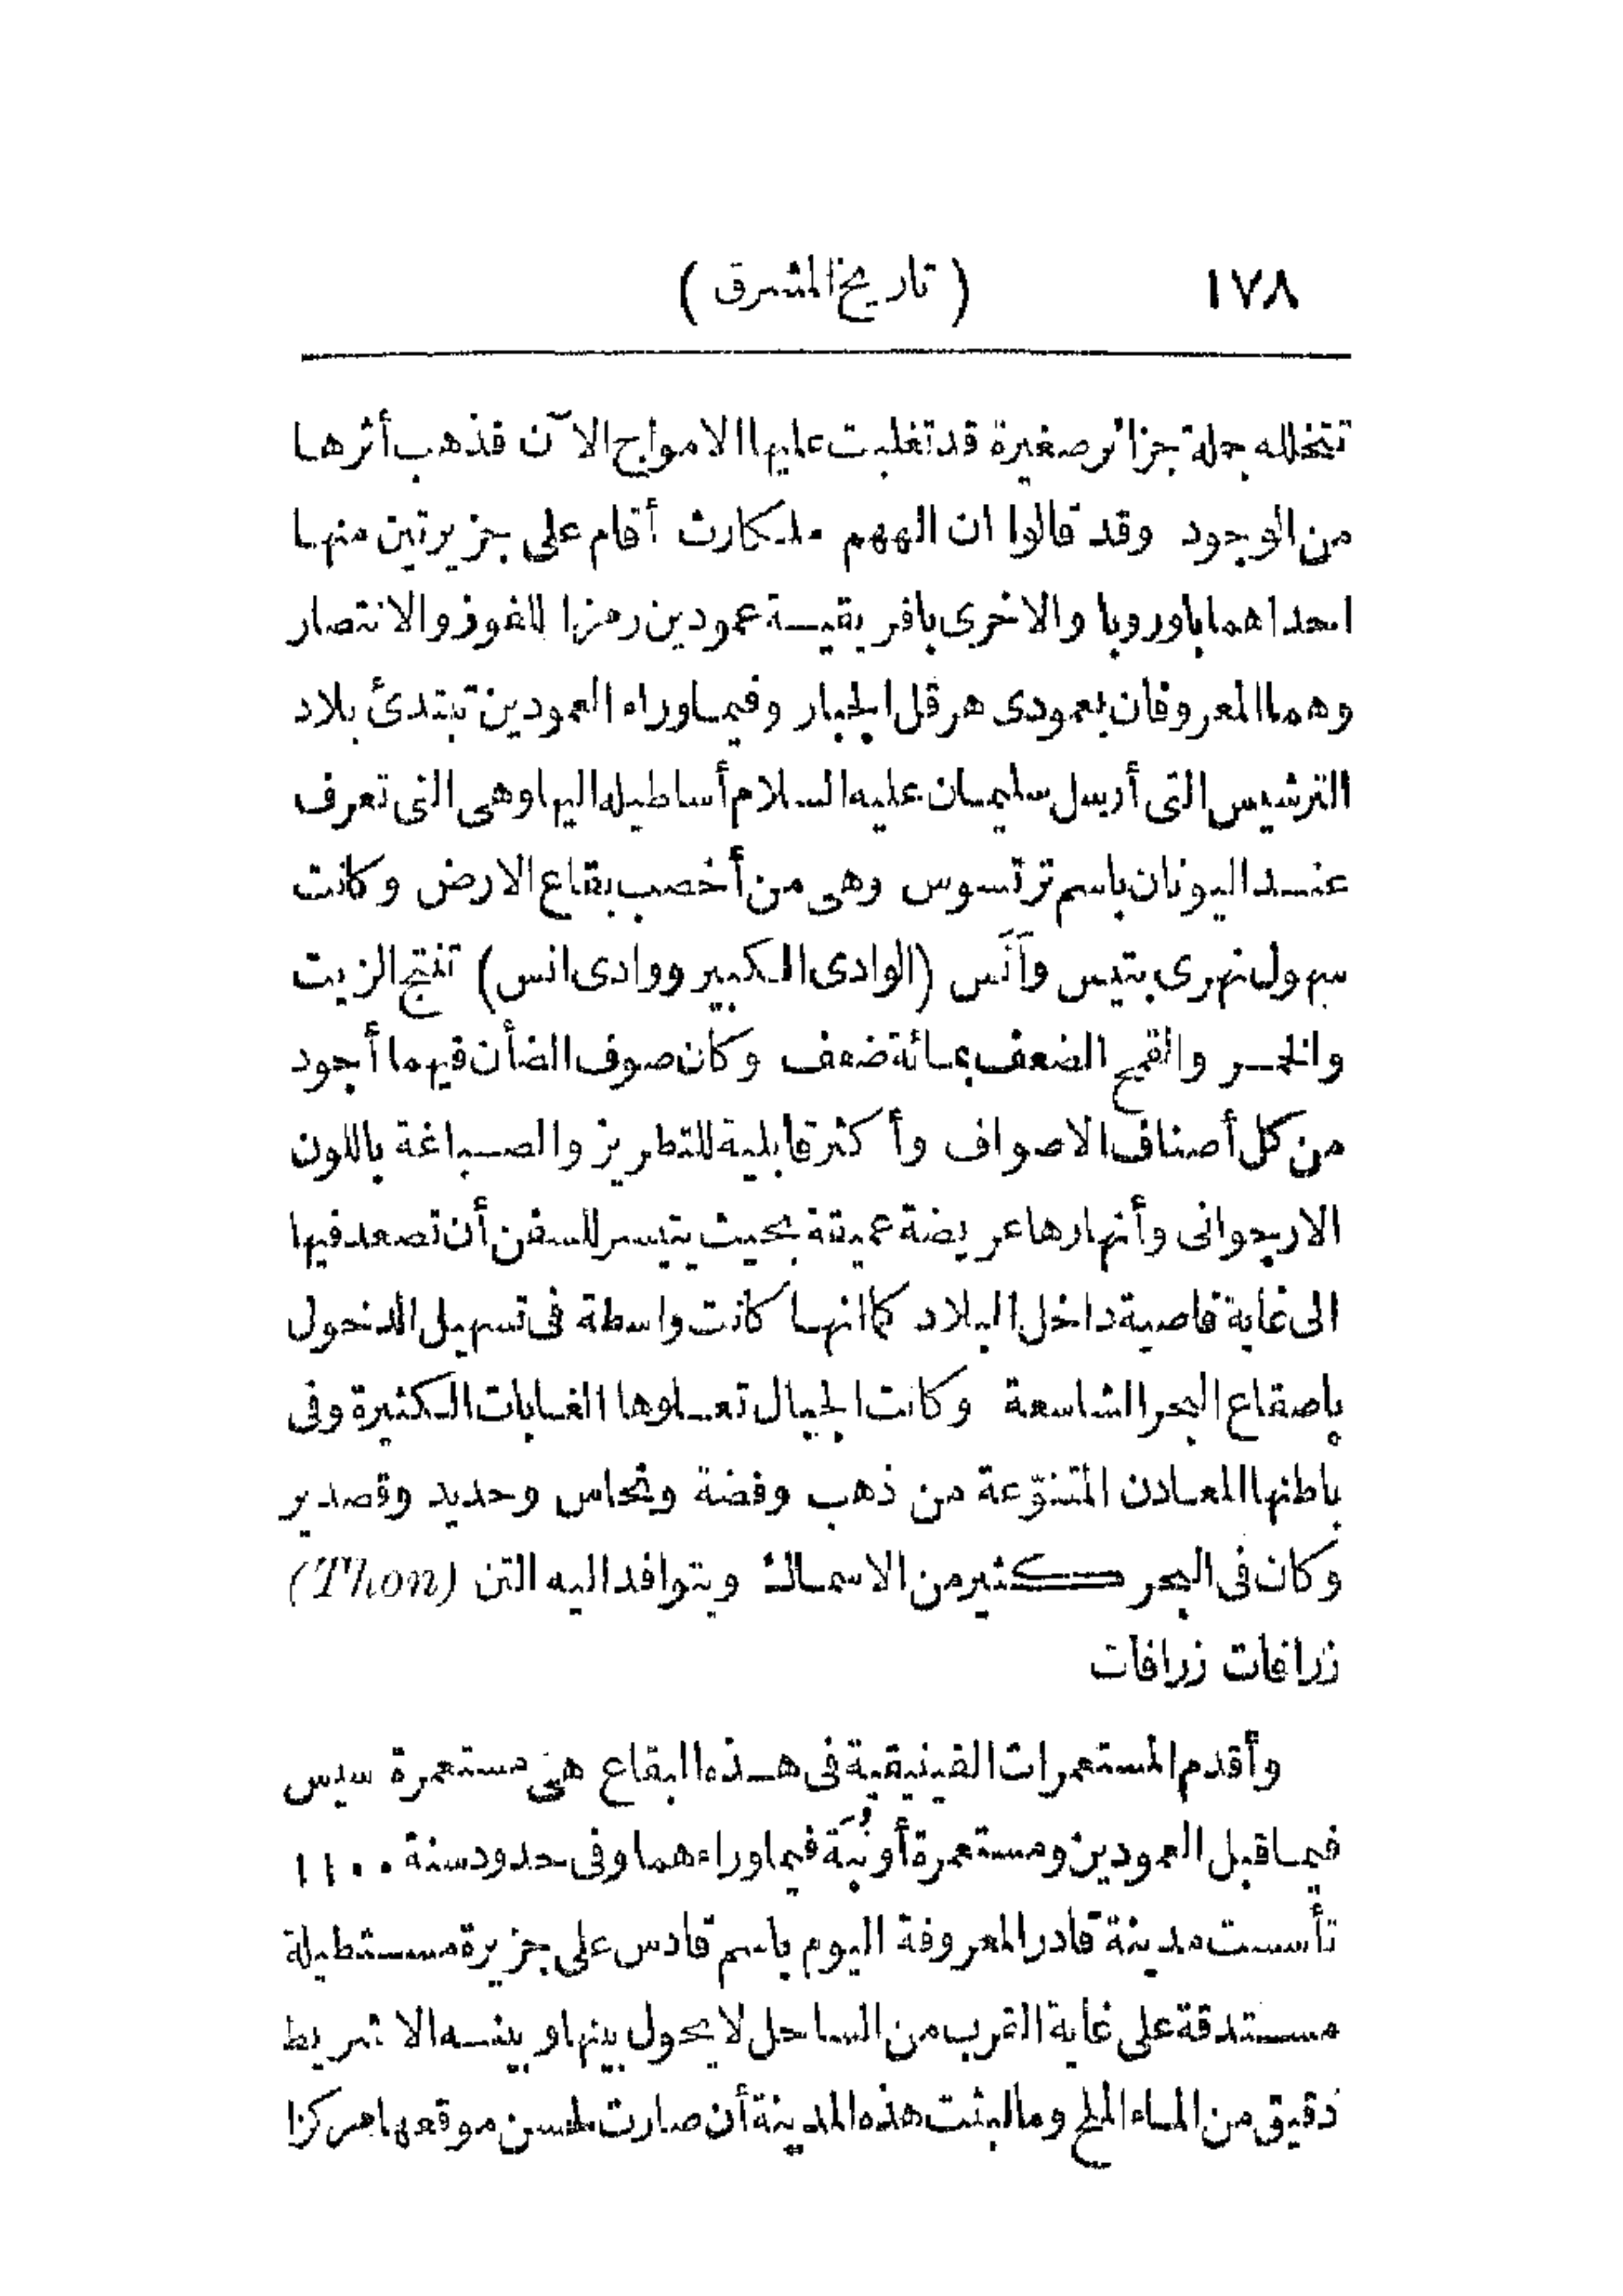 ١٧٨ ( تاريخ المشرق )
تتخلله جملة جزائر صغيرة قد تغلبت عليها الامواج الآن فذهب أثرها
من الوجود وقد قالوا ان الههم ملكارث أقام على جزيرتين منها
احداهما باوروبا والاخرى بافريقيـة عمودين رمزا للفوز والانتصار
وهما المعروفان بعمودى هرقل الجبار وفيما وراء العمودين تبتدئ بلاد
الترشيس التى أرسل سليمان عليه السلام أساطيله اليها وهى التى تعرف
عنـد اليونان باسم ترتسوس وهى من أخصب بقاع الارض وكانت
سهول نهرى بتيس وآنَس (الوادى الكبير ووادى انس) تنتج الزيت
والخمـر والقمح الضعف بمائة ضعف وكان صوف الضأن فيهما أجود
من كل أصناف الاصواف وأكثر قابلية للتطريز والصـباغة باللون
الارجوانى وأنهارها عريضة عميقة بحيث يتيسر للسفن أن تصعد فيها
الى غاية قاصية داخل البلاد كما انها كانت واسطة فى تسهيل الدخول
باصقاع البحر الشاسعة وكانت الجبال تعـلوها الغابات الكثيرة وفى
باطنها المعادن المتنوّعة من ذهب وفضة ونحاس وحديد وقصدير
وكان فى البحر كثير من الاسماك ويتوافد اليه التن (Thon)
زرافات زرافات
وأقدم المستعمرات الفينيقية فى هـذه البقاع هى مستعمرة سيس
فيما قبل العمودين ومستعمرة أونُبَة فيما وراءهما وفى حدود سنة ١١٠٠
تأسست مدينة قادر المعروفة اليوم باسم قادس على جزيرة مسـتطيلة
مسـتدقة على غاية القرب من الساحل لا يحول بينها وبينـه الا شريط
دقيق من الماء الملح وما لبثت هذه المدينة أن صارت لحسن موقعها مركزا